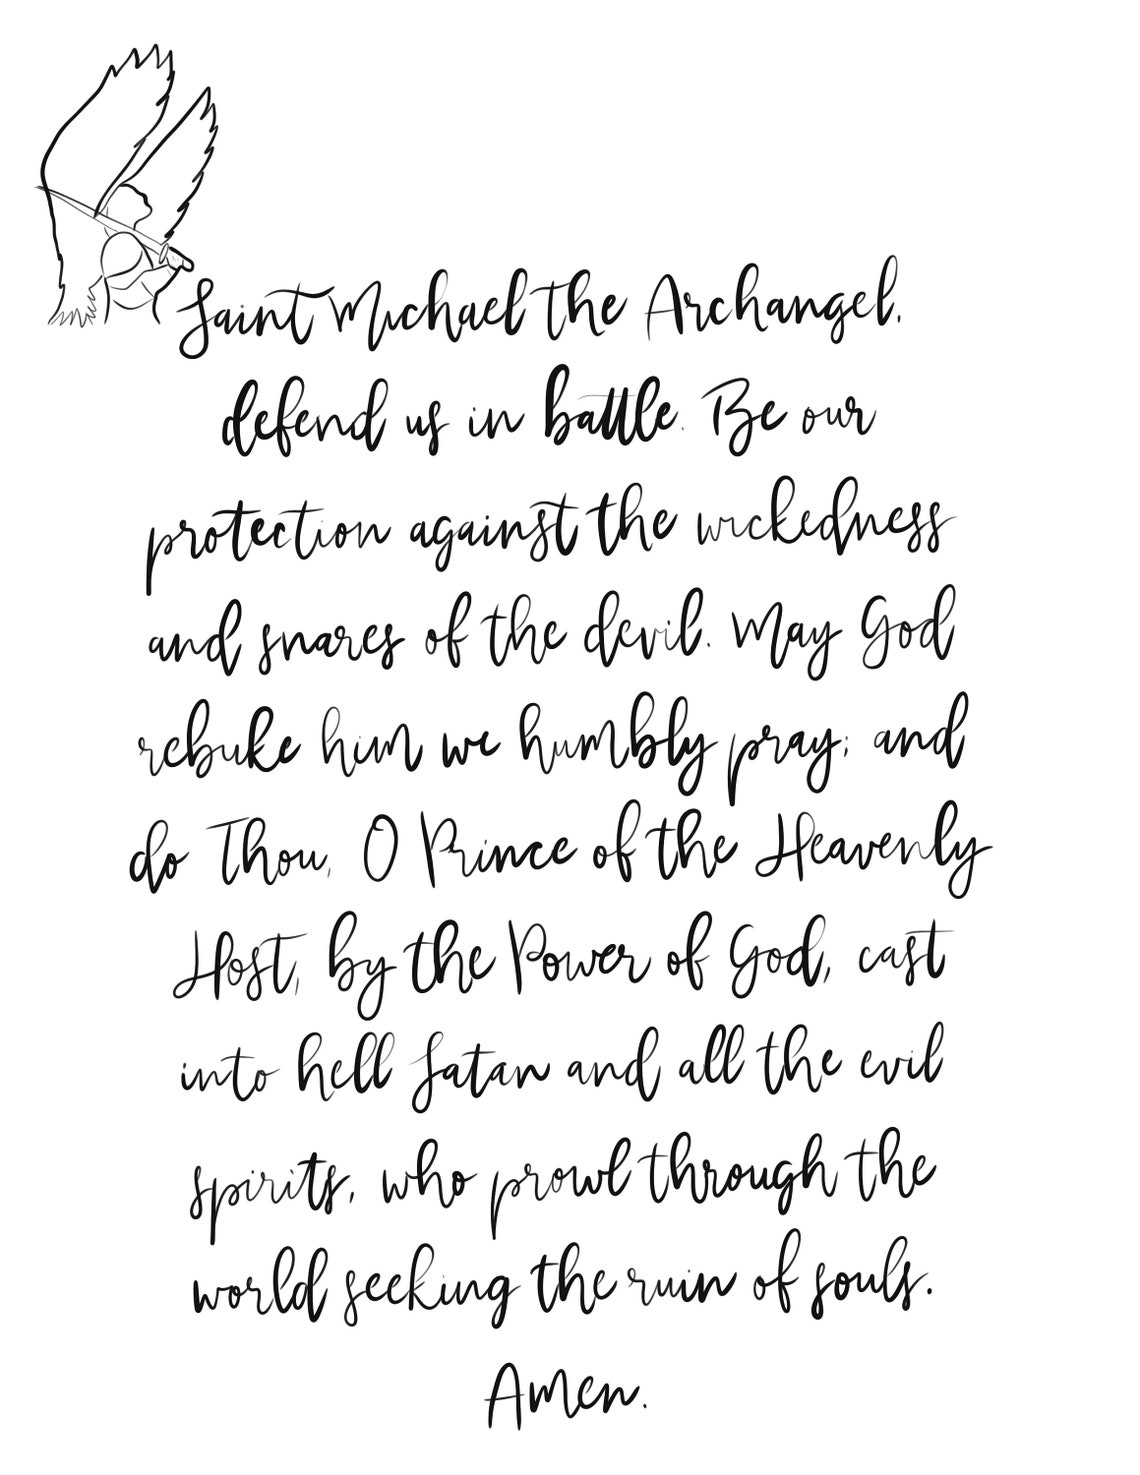 Saint Michael the Archangel,
defend us in battle. Be our
protection against the wickedness
and snares of the devil. May God
rebuke him we humbly pray; and
do Thou, O Prince of the Heavenly
Host, by the Power of God, cast
into hell Satan and all the evil
spirits, who prowl through the
world seeking the ruin of souls.
Amen.